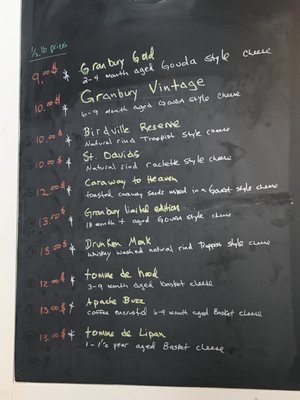 1/2 lb prices
9.00$ * Granbury Gold
2-4 month aged Gouda style cheese
10.00$ * Granbury Vintage
6-9 month aged Gouda style cheese
10.00$ * Birdville Reserve
Natural rind Trappist style cheese
10.00$ * St. Davids
Natural rind raclette style cheese
12.00$ * Caraway to Heaven
toasted caraway seeds mixed in a Gouda style cheese
13.00$ * Granbury limited edition
18 month + aged Gouda style cheese
13.00$ * Drunken Monk
Whiskey washed natural rind Trappist style cheese
12.00$ * tomme de hood
3-9 month aged basket cheese
13.00$ * Apache Buzz
coffee encrusted 6-9 month aged Basket cheese
13.00$ * tomme de Lipan
1-1½ year aged Basket cheese